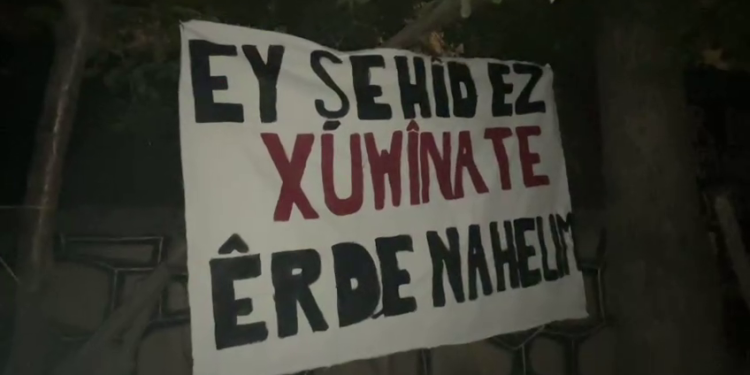 EY ŞEHÎD EZ
XUWÎNA TE
ÊRDE NAHELIM